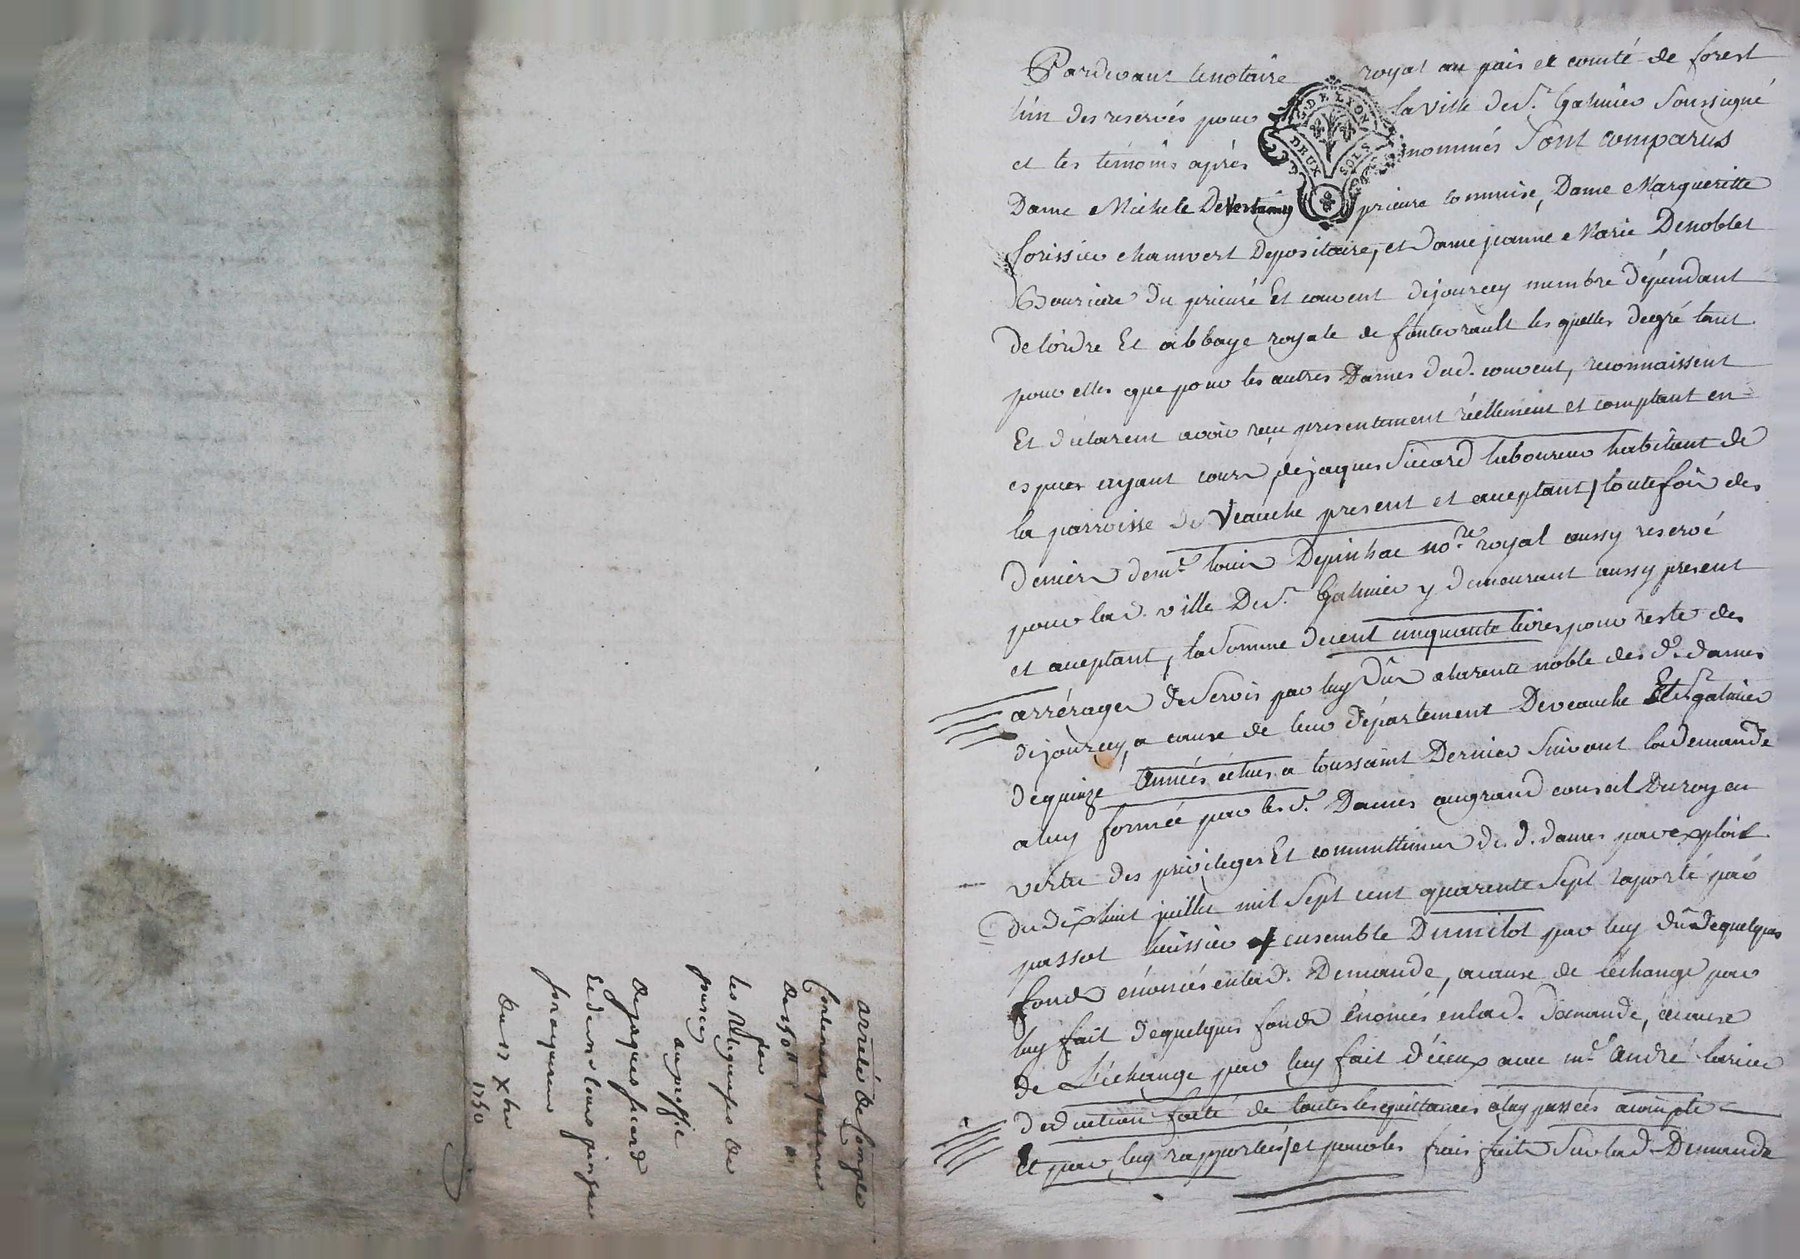 Pardevant le notaire royal au païs et comté de forest
l'un des reservés pour la ville de St. Galmier soussigné
et les témoins après nommés sont comparus
G. DE LYON
DEUX SOLS
Dame Michele DeVertamy prieure commise, Dame Margueritte
forissier chamvert Depositaire, et Dame jeanne Marie Denoblet
Bourciere du prieuré Et couvent dejourcey membre dépendant
de l'ordre Et abbaye royale de fontevrault lesquelles de gré tant
pour elles que pour les autres Dames dud. couvent, reconnaissent
Et déclarent avoir reçu presentement réellement et comptant en
espèces ayant cours de jaques Sicard laboureur habitant de
la parroisse de Veauche present et acceptant, toutefois des
deniers de me. Louis Depinhac nore. royal aussy reservé
pour lad. ville De St. Galmier y demeurant aussy present
et acceptant, la Somme de cent cinquante livres pour reste des
arrérages de servis par luy dus a la rente noble des d. dames
de jourcey, a cause de leur département De veauche Et St galmier
de quinze années échus a toussaint Dernier suivant la demande
a luy formée par les d. Dames au grand conseil Du roy en
vertu des privileges Et committimus des d. dames par exploit
du dixhuit juillet mil sept cent quarente sept raporté par
passot huissier ensemble Dumilot par luy du de quelques
fonds énoncés en lad. Demande, a cause de l'échange par
luy fait de quelques fonds énoncés en lad. Demande, a cause
de L'échange par luy fait d'iceux avec me. andré
deduction faite de toutes les quittances a luy passées a compte
Et par luy rapportées, et pour les frais faits sur lad. Demande
arreté de Compte
Contenant quittance
de 150 ll
des
les Religieuses de
jourcey
au proffit
De jaques sicard
Le dernier
du 17 xbre
1750